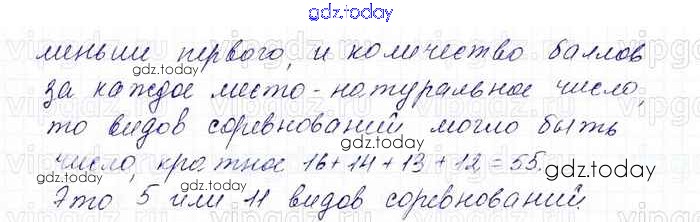 gdz.today
меньши первого, и количество баллов
gdz.today gdz.today
за каждое место - натуральное число,
то видов соревнований могло быть
gdz.today
число, кратное 16+14+13+12=55.
gdz.today
Это 5 или 11 видов соревнований.
gdz.today